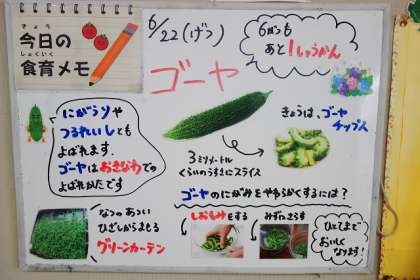 きょう
今日の
しょくいく
食育メモ
6/22(げつ)
6がつも
あと1しゅうかん
ゴーヤ
にがうりや
つるれいしとも
よばれます。
ゴーヤはおきなわでの
よばれかたです
きょうは、ゴーヤ
チップス
3ミリメートル
くらいのうすさにスライス
ゴーヤのにがみをやわらかくするには?
なつの あつい
ひざしからまもる
グリーンカーテン
しおもみをする
みずにさらす
ひとてまで
おいしく
なります!